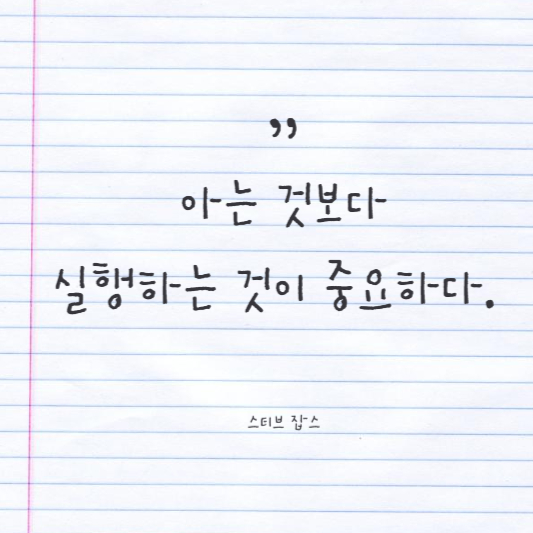 ”
아는 것보다
실행하는 것이 중요하다.
스티브 잡스